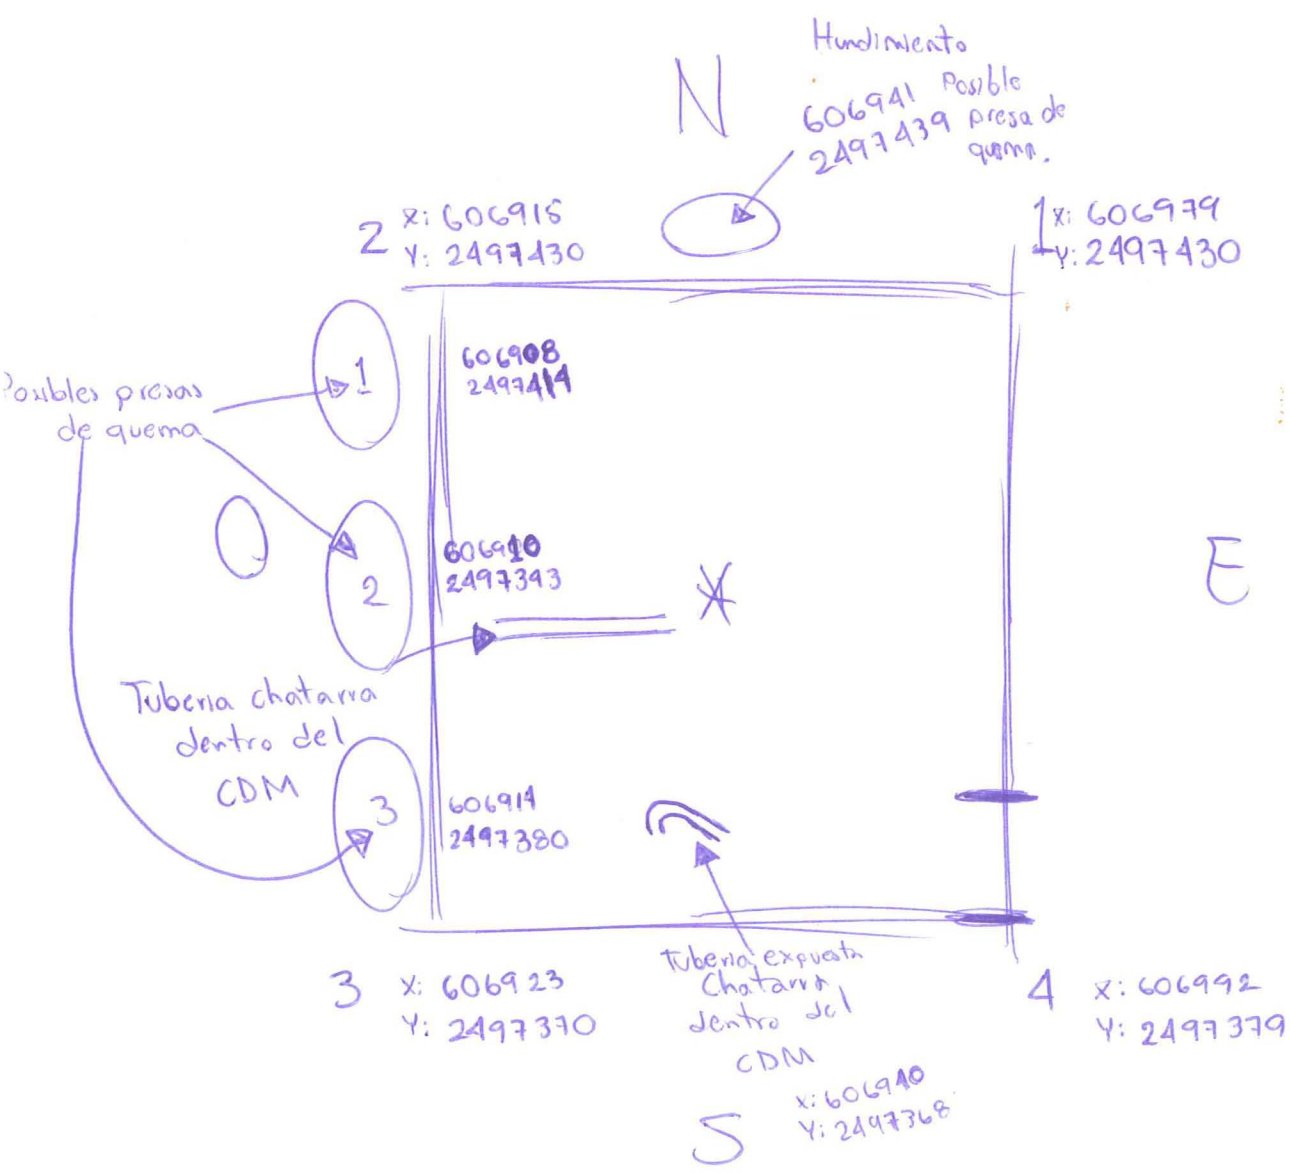 Hundimiento
N
606941 Posible
2497439 presa de
quema.
2 X: 606915
Y: 2497430
1 X: 606979
Y: 2497430
1
606908
2497414
Posibles presas
de quema
2
606910
2497393
X
E
Tuberia chatarra
dentro del
CDM
3
606914
2497380
3 X: 606923
Y: 2497370
Tuberia expuesta
Chatarra,
dentro del
CDM
X: 606940
Y: 2497368
4 X: 606992
Y: 2497379
S